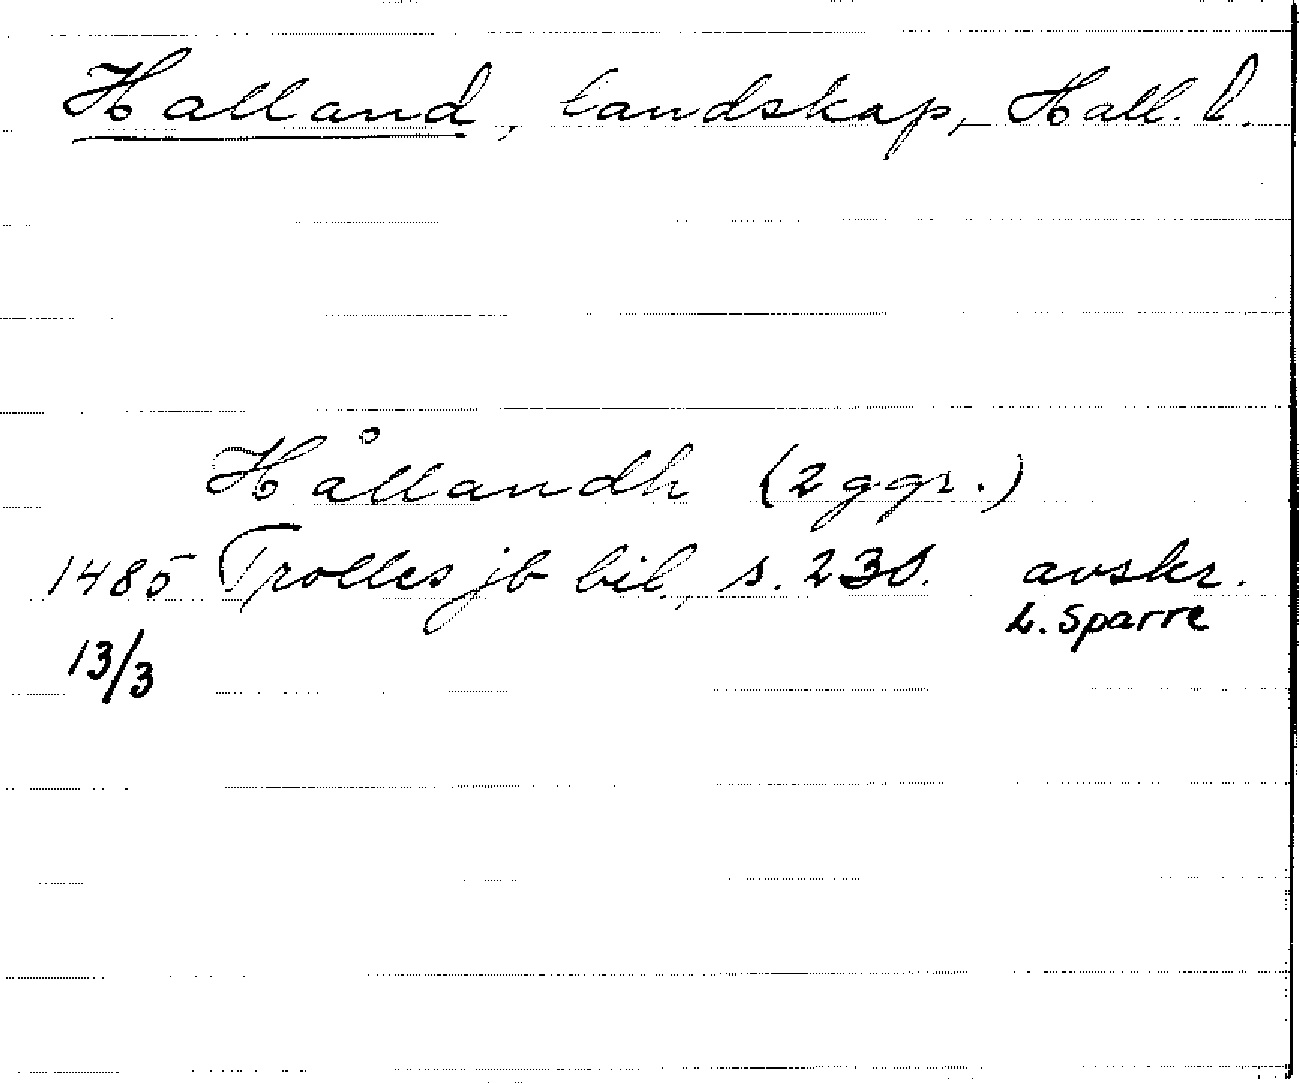 Halland, landskap, Hall. l.
Hållandh (2 ggr.)
1485 Trolles jb bil., s. 230. avskr.
13/3 L. Sparre